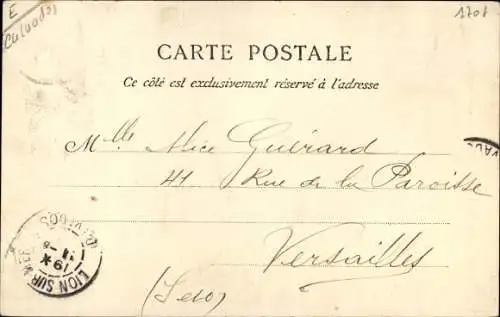 E
Calvados
1708
CARTE POSTALE
Ce côté est exclusivement réservé à l'adresse
Mlle Alice Guérard
41 Rue de la Paroisse
Versailles
(Seo)
LION SUR MER
CALVADOS